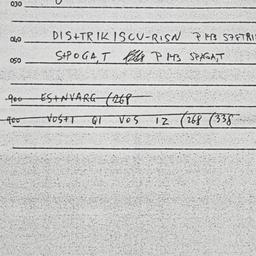 030
040 DIS+TRIK ISCU-RISN P M3
050 S+POGA,T P M3 SPAGA,T
900 ES+NVARG (268
900 VOS+I QI VOS IZ (268 (338